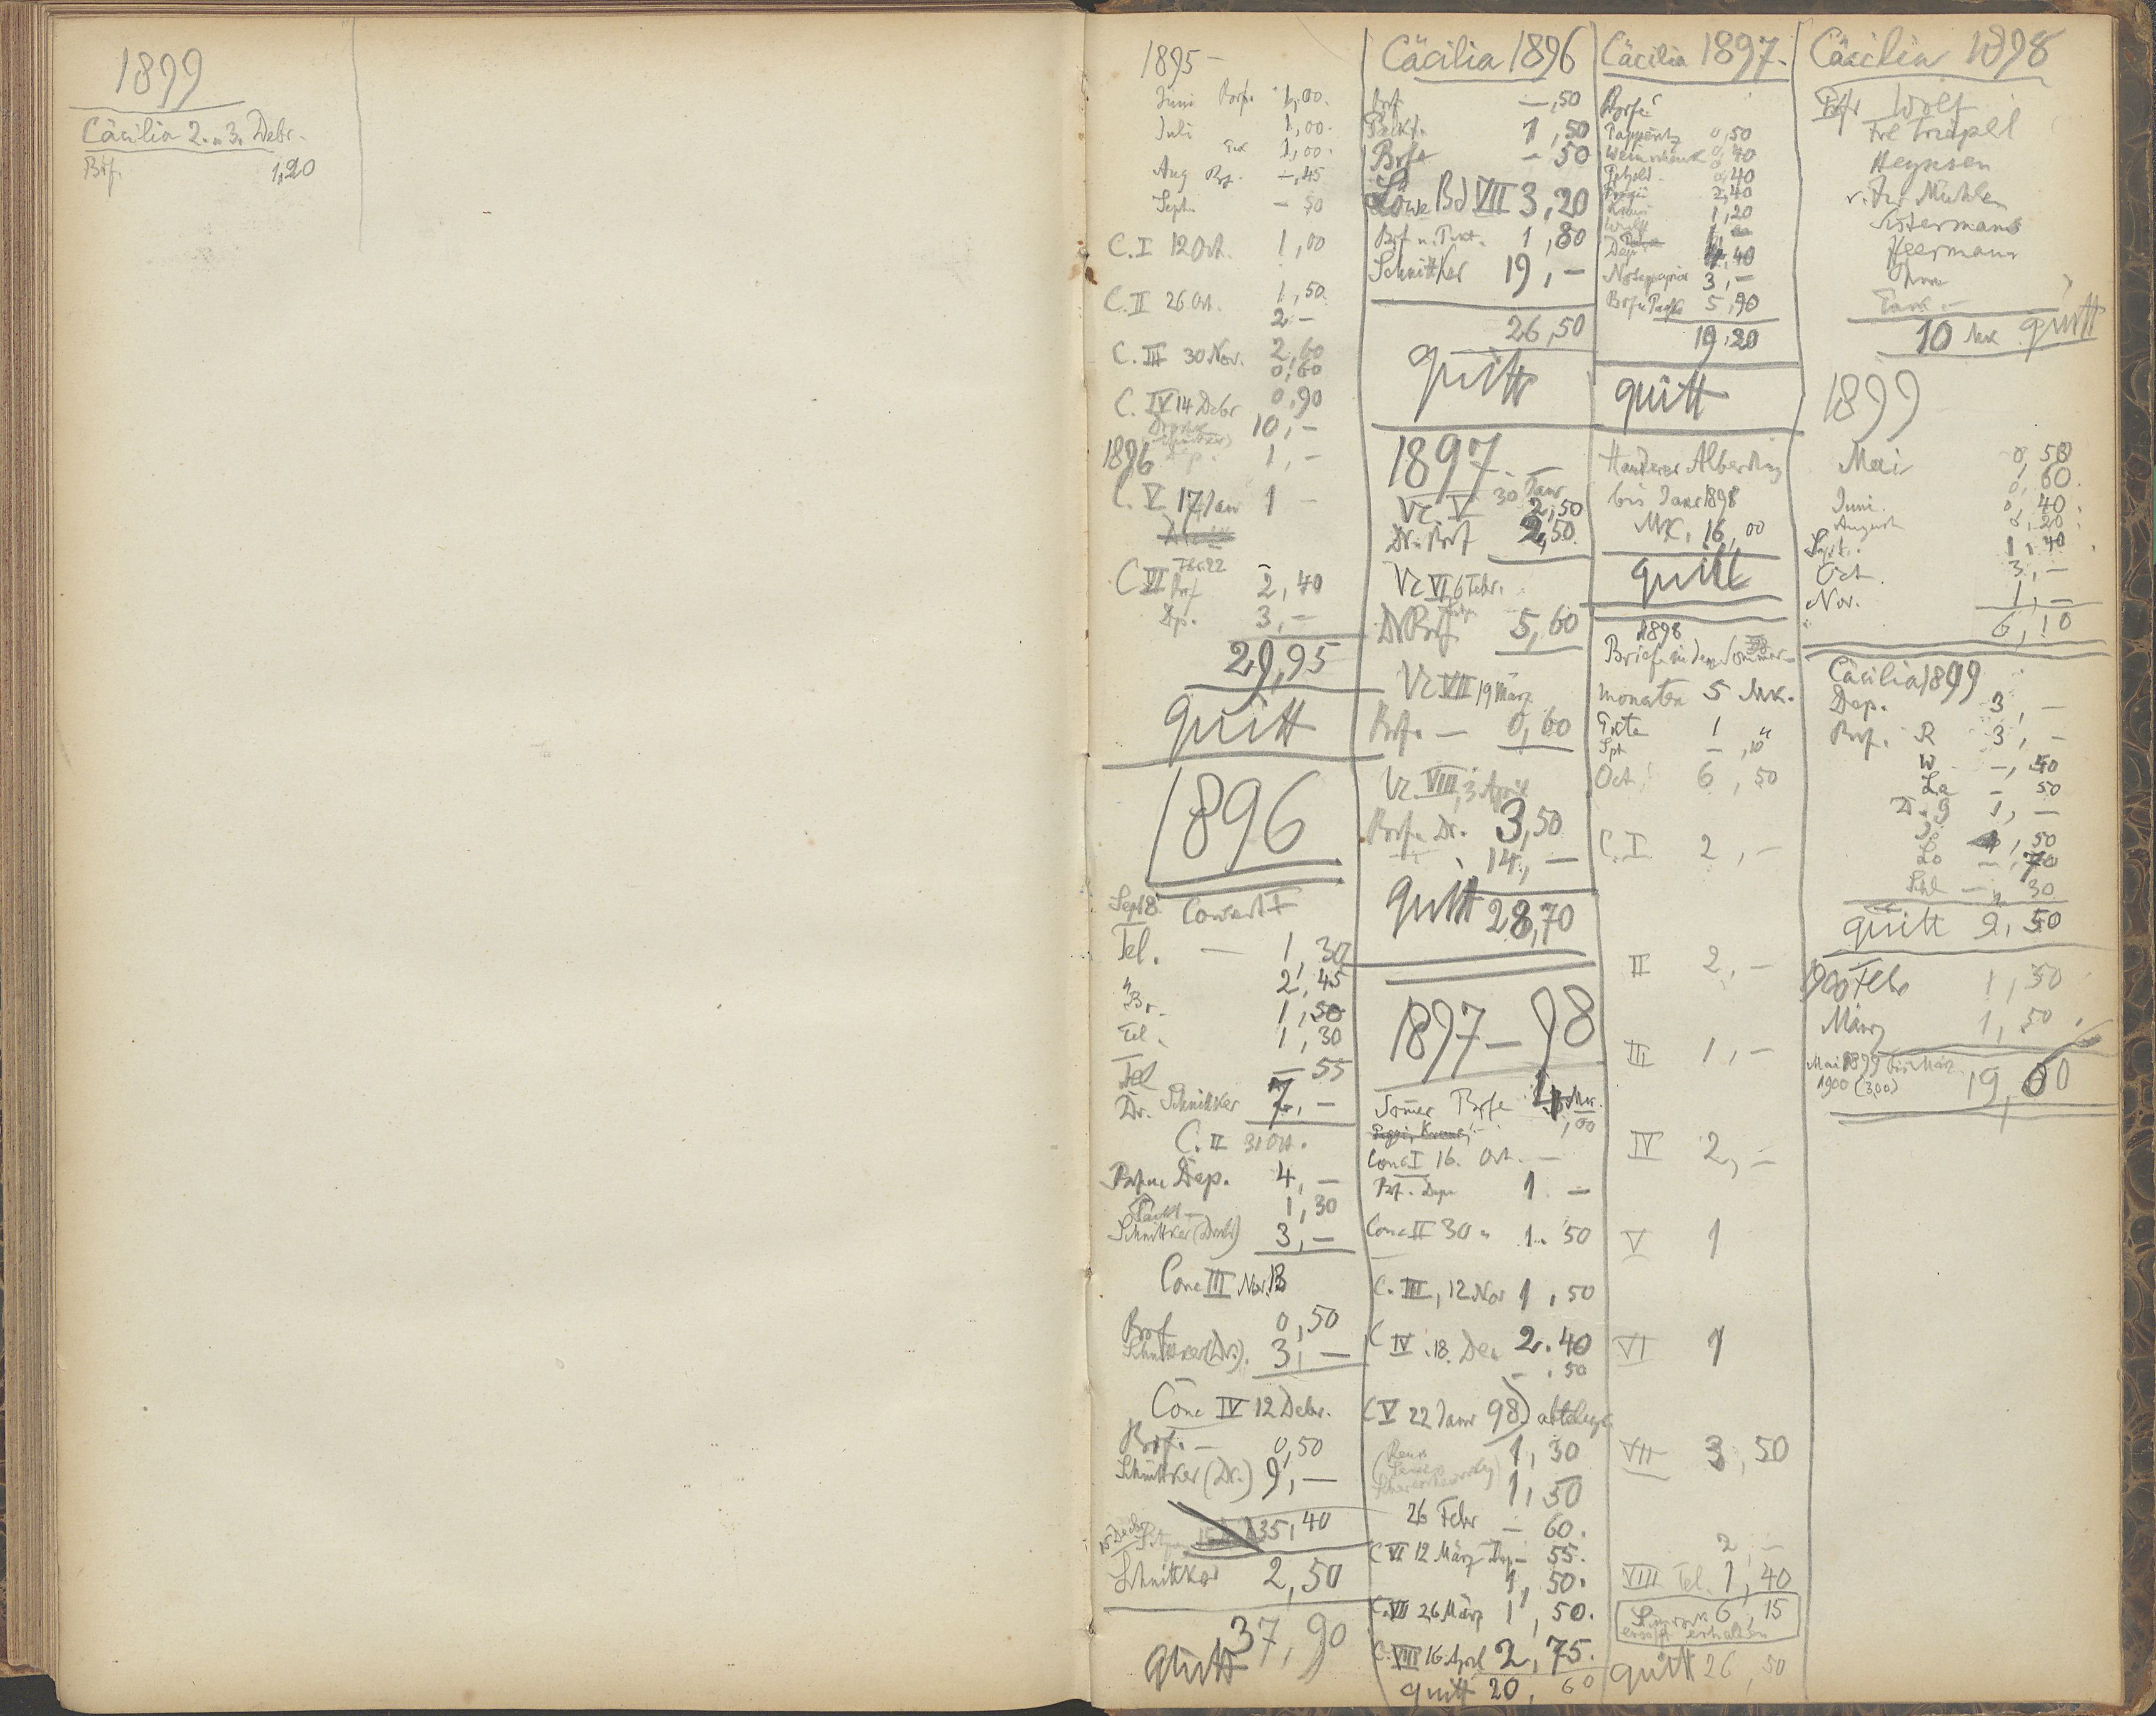 1899
Cäcilia 2. u. 3. Debr.
Brf. 1,20
1895 –
Juni Porto 1,00.
Juli 1,00.
1,00.
Aug Brf. –,45
Sept. – 50
C. I 12 Oct. 1,00
C. II 26 Oct. 1,50.
2 –
C. III 30 Nov. 2,60
0,60
C. IV 14 Debr 0,90
10,–
1896 Dep. 1,–
C. V 17 Jan 1 –
C VI Febr. 22
Brf 2,40
Dp. 3,–
29,95
quitt
1896
Sept 8. Concert I
Tel. – 1,30
" Br. 2,45
1,50
Tel. 1,30
Tel – 55
Dr. Schnittker 7,–
C. II 31 Oct.
Brf. u. Dep. 4,–
Packt – 1,30
Schnittker (Druck) 3,–
Conc III Nov. 13
Brf 0,50
Schnittker (Dr.). 3,–
Conc IV 12 Debr.
Brf. – 0,50
Schnittker (Dr.) 9,–
15 Decbr 35,40
Schnittker 2,50
37,90
quitt
Cäcilia 1896
Brf –,50
Packt. 1,50
Brfe – 50
Löwe Bd VII 3,20
Brf u. Pckt. 1,80
Schnittker 19,–
26,50
quitt
1897
Vc V 30 Janr
2,50
Dr. Brf 2,50.
Vc VI 6 Febr.
Dr Brf 5,60
Vc VII 19 März
Brf. – 0,60
Vc. VIII, 3 April
Brf u. Dr. 3,50
14,–
quitt 28,70
1897–98
Somer Brfe 4 Mk.
,00
Conc I 16. Oct. –
Brf. Depe 1 –
Conc II 30 " 1. 50
C. III, 12 Nov 1,50
C IV .18. Dec 2.40
– .50
C V 22 Janr 98) abtelegr.
1,30
1,50
26 Febr – 60.
C VI 12 März Dep – 55.
1,50.
C. VII 26 März 1,50.
C. VIII 16 April 2,75.
quitt 20,60
Cäcilia 1897.
Brfe
0,50
Weinschenk 0,40
Petzold 0,40
2,40
Kraus 1,20
Wolf 1 –
Dep 4,40
Notenpapier 3,–
Brf u. Packt 5,90
19,20
quitt
Handerer Alberding
bis Janr 1898
Mk. 16,00
quitt
1898
Briefe in den Sommer–
monaten 5 Mk.
1 "
Spt – ,10
Oct. 6,50
C. I 2,–
II 2,–
III 1,–
IV 2,–
V 1
VI 1
VII 3,50
2,–
VIII Tel. 1,40
Simrock 6,15
ersetzt erhalten
quitt 26,50
Cäcilia 1898
Brfe Wolf
Frl Triepel
Heynsen
v. Zur Mühlen
Sistermans
Heermann
10 Mk quitt
1899
Mai 0,50
1,60.
Juni. 0,40.
August 0,20.
Sept. 1,40.
Oct. 3,–
Nov. 1,–
6,10
Cäcilia 1899
Dep. 3,–
Brf. R 3,–
W –,50
La – 50
D. g 1,–
1,50
Lo –,70
Schl –,30
quitt 9,50
1900 Febr 1,50
März 1,50.
Mai 1899 bis März
1900 (3,00) 19,60